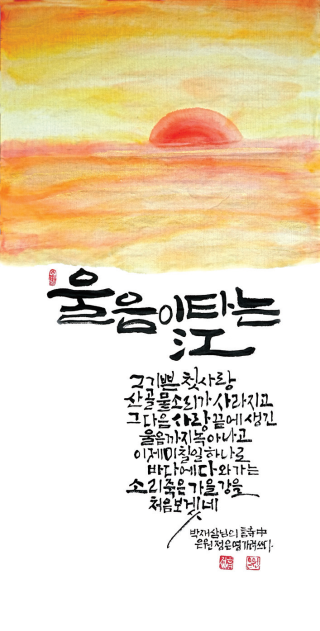 울음이타는
江
그 기쁜 첫사랑
산골 물소리가 사라지고
그 다음 사랑 끝에 생긴
울음까지 녹아나고
이제 미칠 일 하나로
바다에 다 와가는
소리죽은 가을강을
처음 보겠네
박재삼님의 詩 中
은명 가려쓰다.